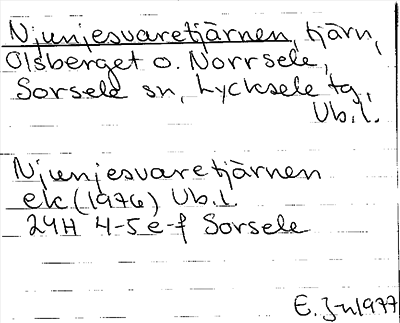 Njunjesvaretjärnen, tjärn,
Olsberget o. Norrsele,
Sorsele sn, Lycksele tg,
Vb. l.
Njunjesvaretjärnen
ek (1976) Vb. L
24H 4-5 e-f Sorsele
E. J-n 1977